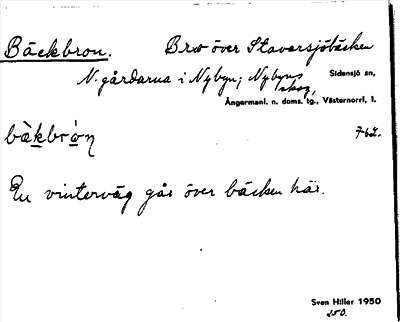 Bäckbron. Bro över Stavarsjöbäcken
N. gårdarna i Nybyn; Nybyns skog,
Sidensjö sn,
Ångermanl. n. doms. tg., Västernorrl. l.
bàkbrón 762.
En vinterväg går över bäcken här.
Sven Hiller 1950
250.